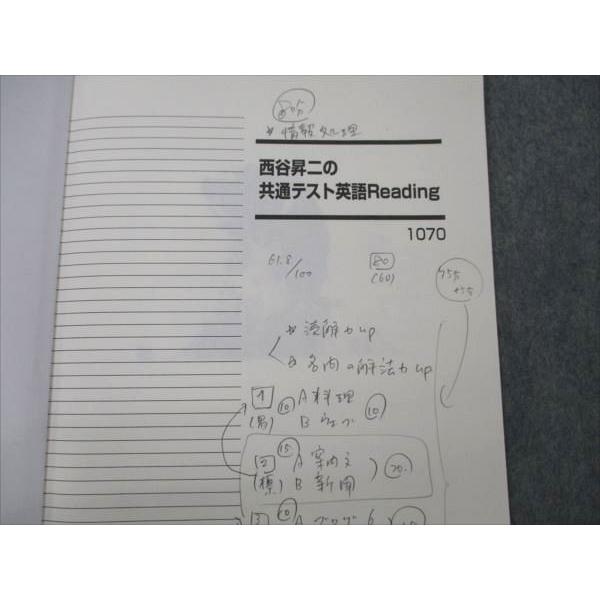 80分
* 情報処理
西谷昇二の
共通テスト英語Reading
1070
61.8/100
80
(60)
* 読解力up
* 各内の解法力up
1 10 A 料理 10
(易) B ウェブ
2 15 A 案内文 20
(標) B 新聞
3 10 A ブログ